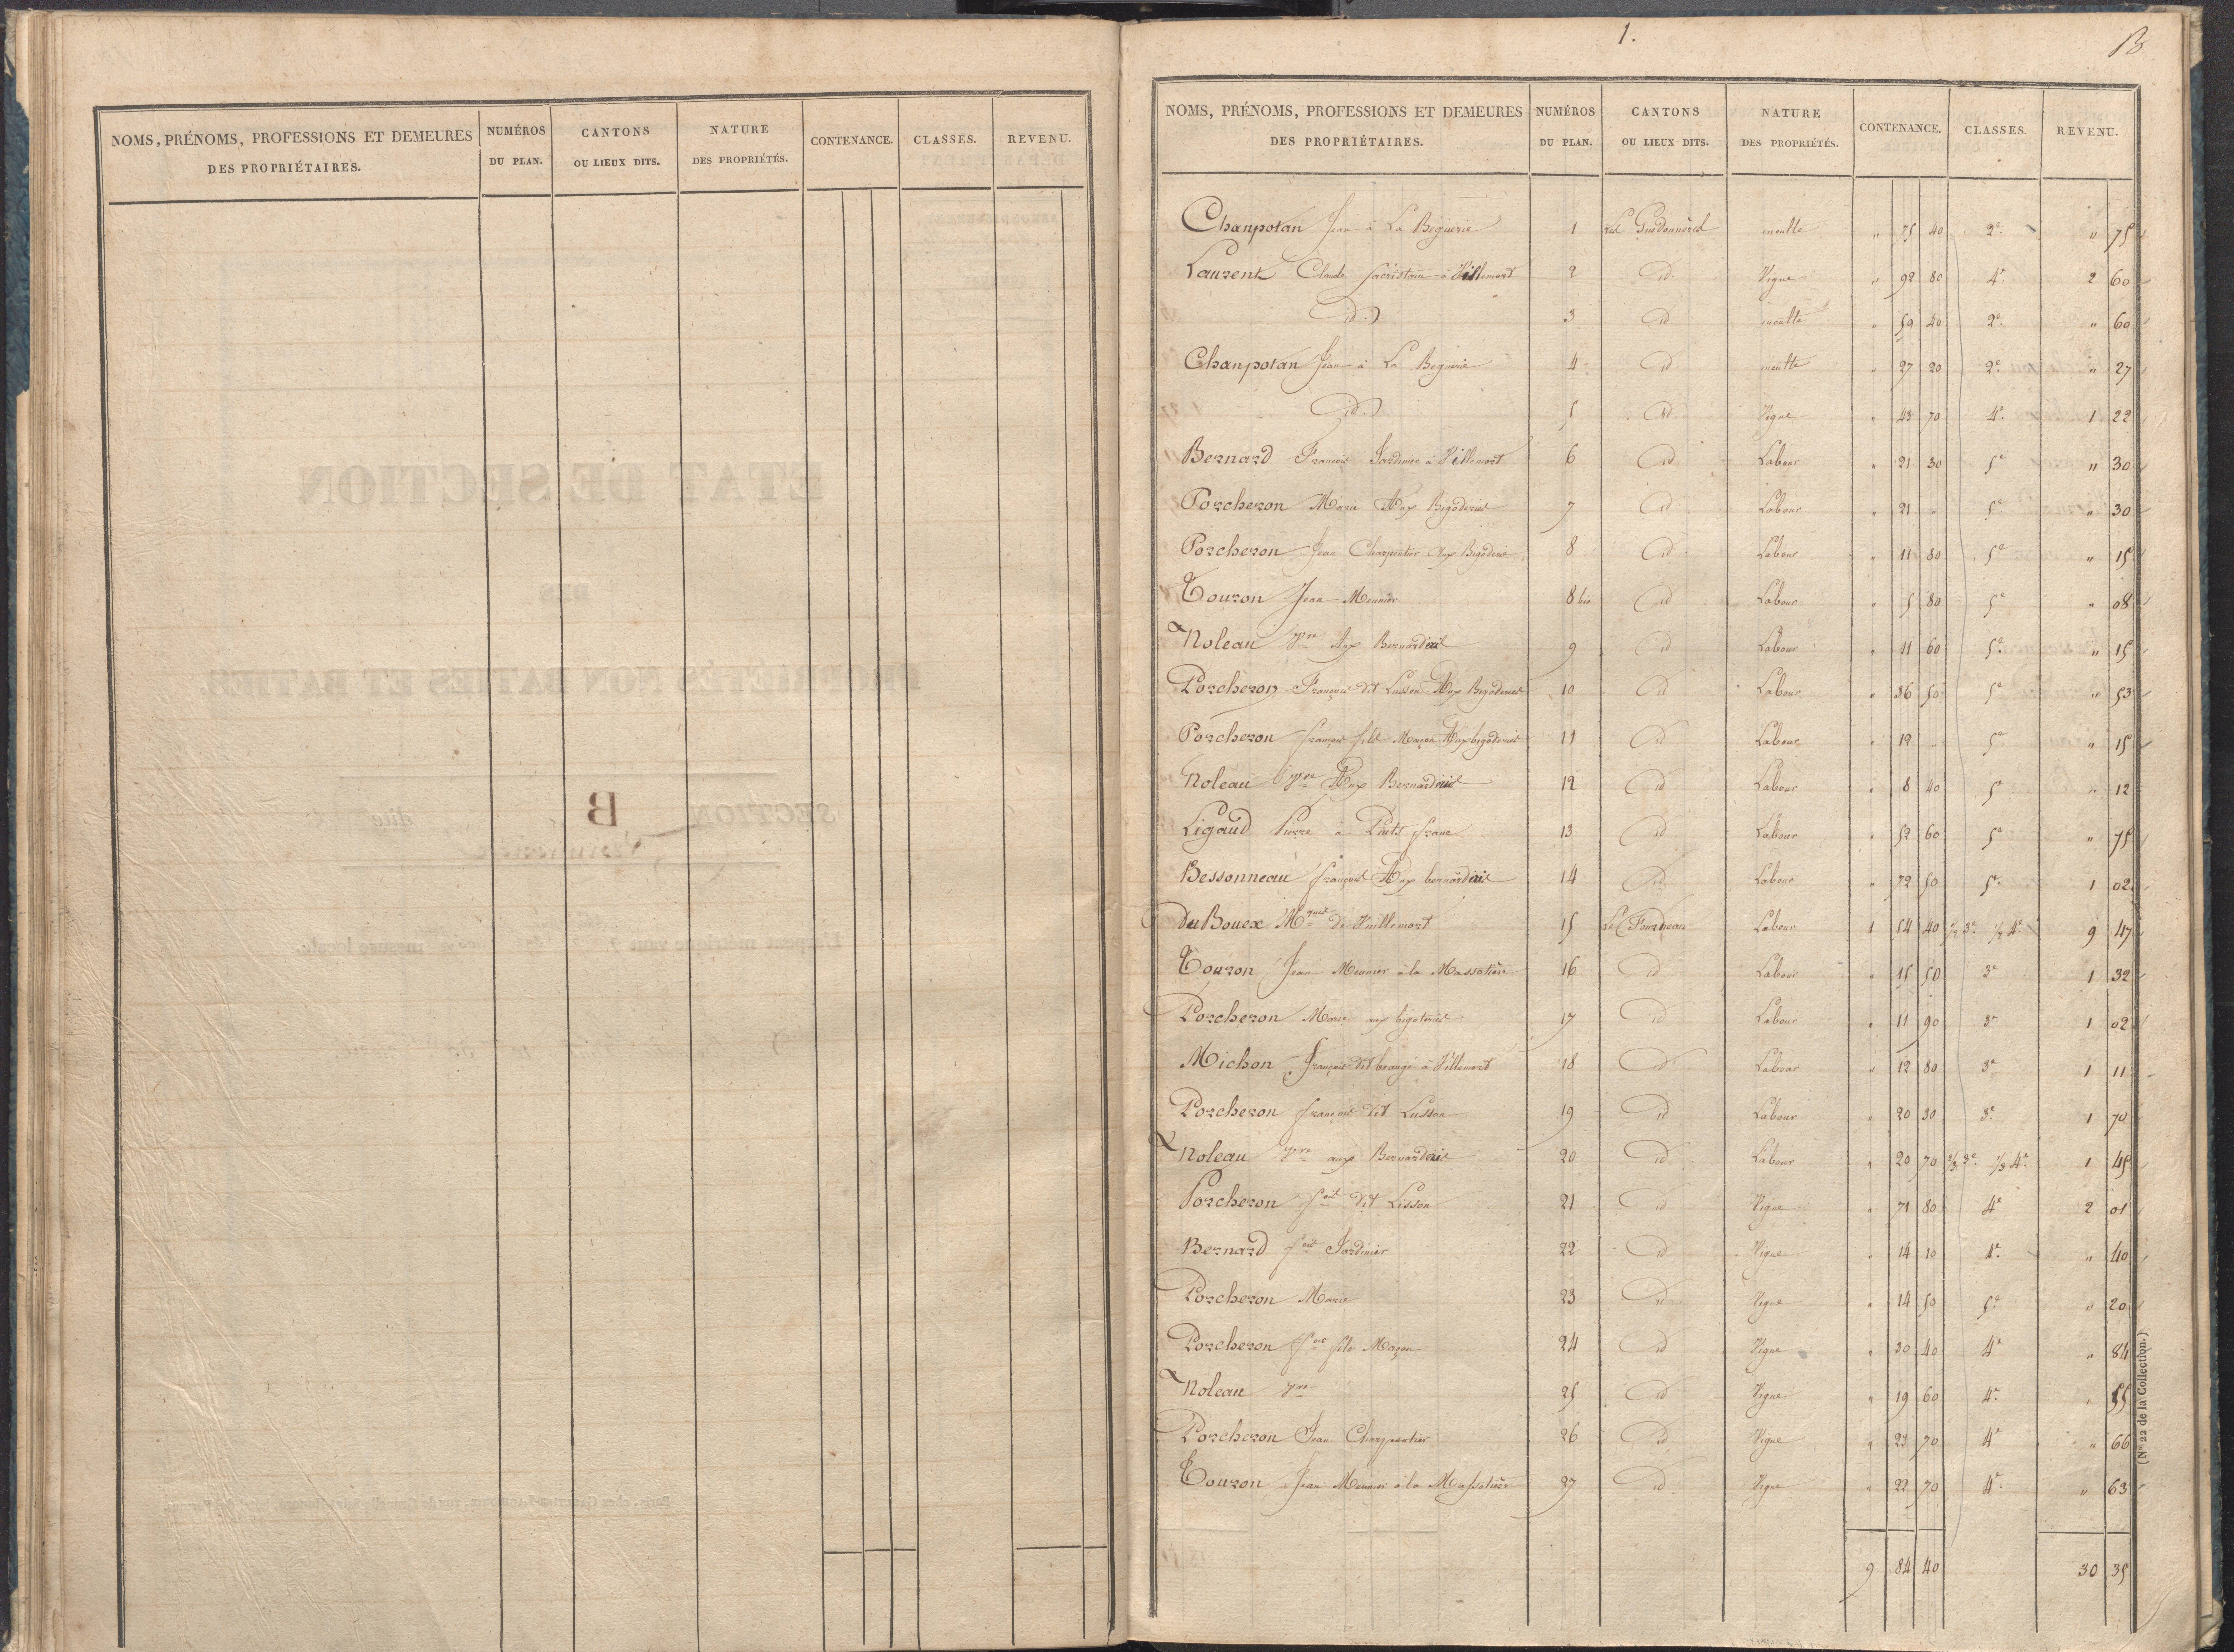 NOMS, PRÉNOMS, PROFESSIONS ET DEMEURES DES PROPRIÉTAIRES. NUMÉROS DU PLAN. CANTONS OU LIEUX DITS. NATURE DES PROPRIÉTÉS. CONTENANCE. CLASSES. REVENU.
1. B
NOMS, PRÉNOMS, PROFESSIONS ET DEMEURES DES PROPRIÉTAIRES. NUMÉROS DU PLAN. CANTONS OU LIEUX DITS. NATURE DES PROPRIÉTÉS. CONTENANCE. CLASSES. REVENU.
Chanpotan Jean à La Béguerie 1 Les inculte " 75 40 2e " 75
Laurent Claude Sacristain à Villemort 2 id Vigne " 92 80 4e 2 60
id 3 id inculte " 59 40 2e " 60
Chanpotan Jean à La Béguerie 4 id inculte " 27 20 2e " 27
id 5 id Vigne " 43 70 4e 1 22
Bernard François Jardinier à Villemort 6 id Labour " 21 30 5e " 30
Porcheron Marie Aux Bigoderies 7 id Labour " 21 " 5e " 30
Porcheron Jean Charpentier Aux Bigoderies 8 id Labour " 11 80 5e " 15
Touron Jean Meunier 8 bis id Labour " 5 80 5e " 08
Noleau pre Aux Bernarderies 9 id Labour " 11 60 5e " 15
Porcheron François dit Lusson Aux Bigoderies 10 id Labour " 36 50 5e " 53
Porcheron françois fils Maçon Aux bigoderies 11 id Labour " 12 " 5e " 15
Noleau pre Aux Bernarderies 12 id Labour " 8 40 5e " 12
Ligaud Pierre à Petit franc 13 id Labour " 52 60 5e " 75
Bessonneau françois Aux bernarderies 14 id Labour " 72 50 5e 1 02
Du Bouex Mquis de Vuillemort 15 Le Fourneau Labour 1 54 40 1/2 3e 1/2 4e 9 47
Touron Jean Meunier à la Massotière 16 id Labour " 15 50 3e 1 32
Porcheron Marie aux bigoteries 17 id Labour " 11 90 3e 1 02
Michon françois dit à Villemort 18 id Labour " 12 80 3e 1 11
Porcheron françois dit Lusson 19 id Labour " 20 30 3e 1 70
Noleau pre aux Bernarderies 20 id Labour " 20 70 2/3 3e 1/3 4e 1 45
Porcheron fois dit Lisson 21 id Vigne " 71 80 4e 2 01
Bernard fois Jardinier 22 id Vigne " 14 10 4e " 40
Porcheron Marie 23 id Vigne " 14 50 5e " 20
Porcheron fois fils Maçon 24 id Vigne " 30 40 4e " 84
Noleau pre 25 id Vigne " 19 60 4e " 55
Porcheron Jean Charpentier 26 id Vigne " 23 70 4e " 66
Touron Jean Meunier à la Massotière 27 id Vigne " 22 70 4e " 63
9 84 40 30 35
(N° 22 de la Collection.)